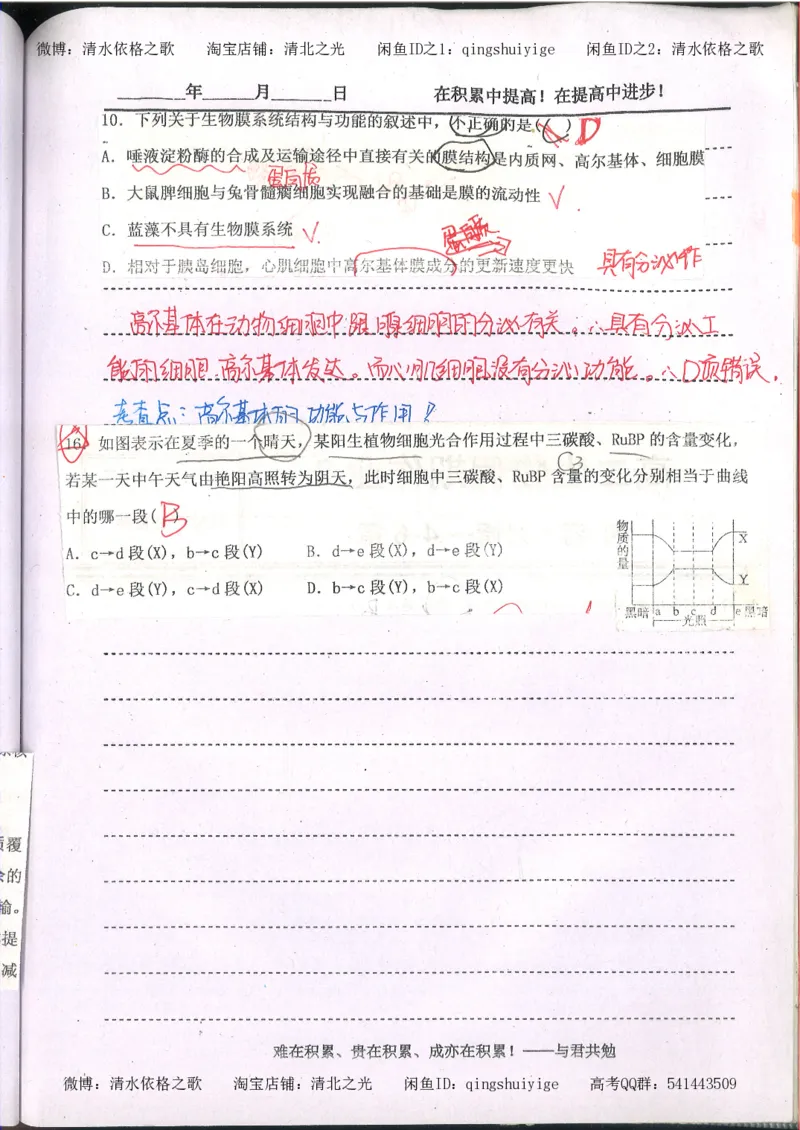 微博：清水依格之歌 淘宝店铺：清北之光 闲鱼ID之1：qingshuiyige 闲鱼ID之2：清水依格之歌
______年______月______日 在积累中提高！在提高中进步！
10. 下列关于生物膜系统结构与功能的叙述中，不正确的是( ) D
A. 唾液淀粉酶的合成及运输途径中直接有关的膜结构是内质网、高尔基体、细胞膜
蛋白质
B. 大鼠脾细胞与兔骨髓瘤细胞实现融合的基础是膜的流动性 √
C. 蓝藻不具有生物膜系统 √
D. 相对于胰岛细胞，心肌细胞中高尔基体膜成分的更新速度更快 具有分泌作
高尔基体在动物细胞中跟腺细胞的分泌有关。∴具有分泌工
能的细胞.高尔基体发达。而心肌细胞没有分泌功能。∴D项错误.
考查点：高尔基体的功能与作用！
16. 如图表示在夏季的一个晴天，某阳生植物细胞光合作用过程中三碳酸、RuBP 的含量变化，
C3
若某一天中午天气由艳阳高照转为阴天，此时细胞中三碳酸、RuBP 含量的变化分别相当于曲线
中的哪一段( B )
A. c→d 段(X)，b→c 段(Y) B. d→e 段(X)，d→e 段(Y)
C. d→e 段(Y)，c→d 段(X) D. b→c 段(Y)，b→c 段(X)
物质的量
X
Y
黑暗 a b c d e 黑暗
光照
质覆
余的
输。
提
减
难在积累、贵在积累、成亦在积累！——与君共勉
微博：清水依格之歌 淘宝店铺：清北之光 闲鱼ID：qingshuiyige 高考QQ群：541443509